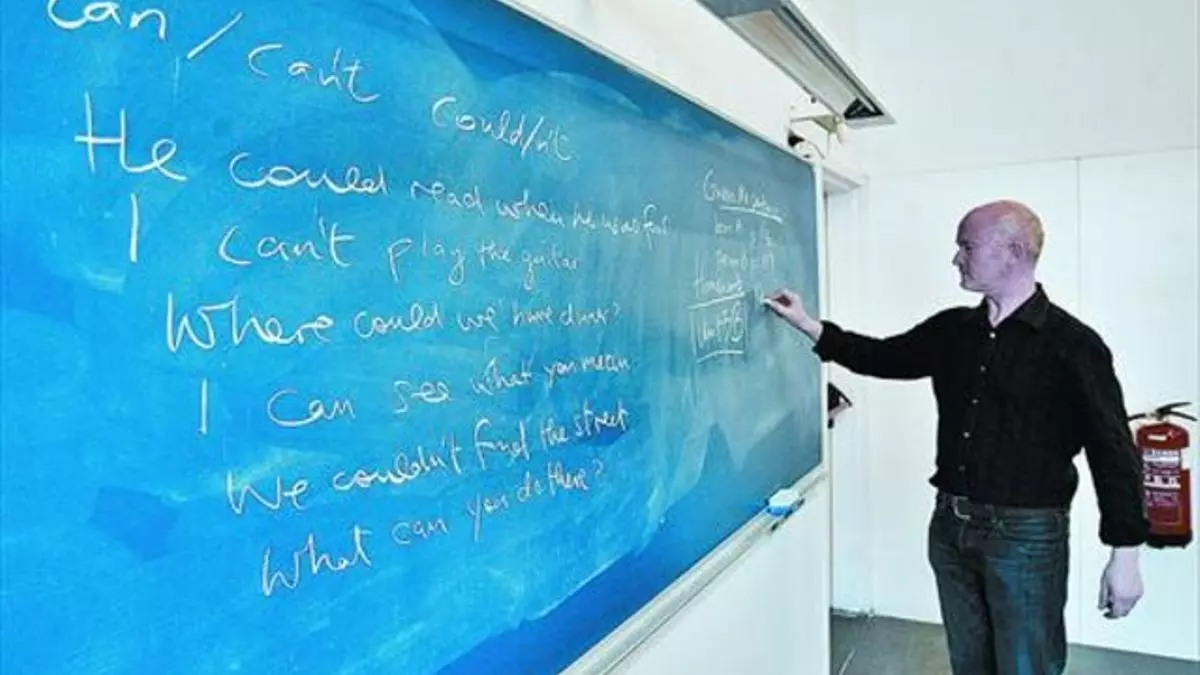 Can / Can't Could/n't
He could read when he was four
I can't play the guitar
Where could we have dinner?
I can see what you mean
We couldn't find the street
What can you do there?
Homework